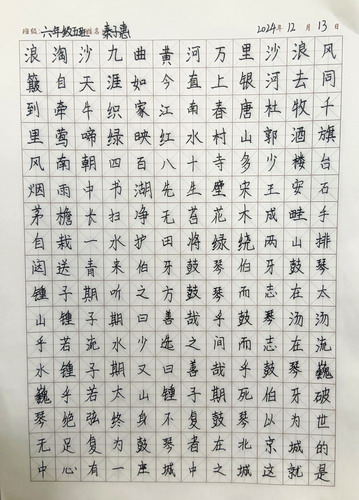 班级:六年级五班姓名 秦子惠 2024年 12 月 13 日
浪淘沙九曲黄河万里沙浪风
簸自天涯如今直上银河去同
到牵牛织家江南春唐杜牧千
里莺啼绿映红水村山郭酒旗
风南朝四百八十寺多少楼台
烟雨中书湖先生壁宋王安石
茅檐长扫净无苔花木成畦手
自栽一水护田将绿绕两山排
闼送青来伯牙鼓琴伯牙鼓琴
锺子期听之方鼓琴而志在太
山锺子期曰善哉乎鼓琴汤汤
乎若流水少选之间而志在流
水锺子期又曰善哉乎鼓琴巍
巍乎若太山锺子期死伯牙破
琴绝弦终身不复鼓琴以为世
无足复为鼓琴者在北京城的
中心有一座城中之城这就是